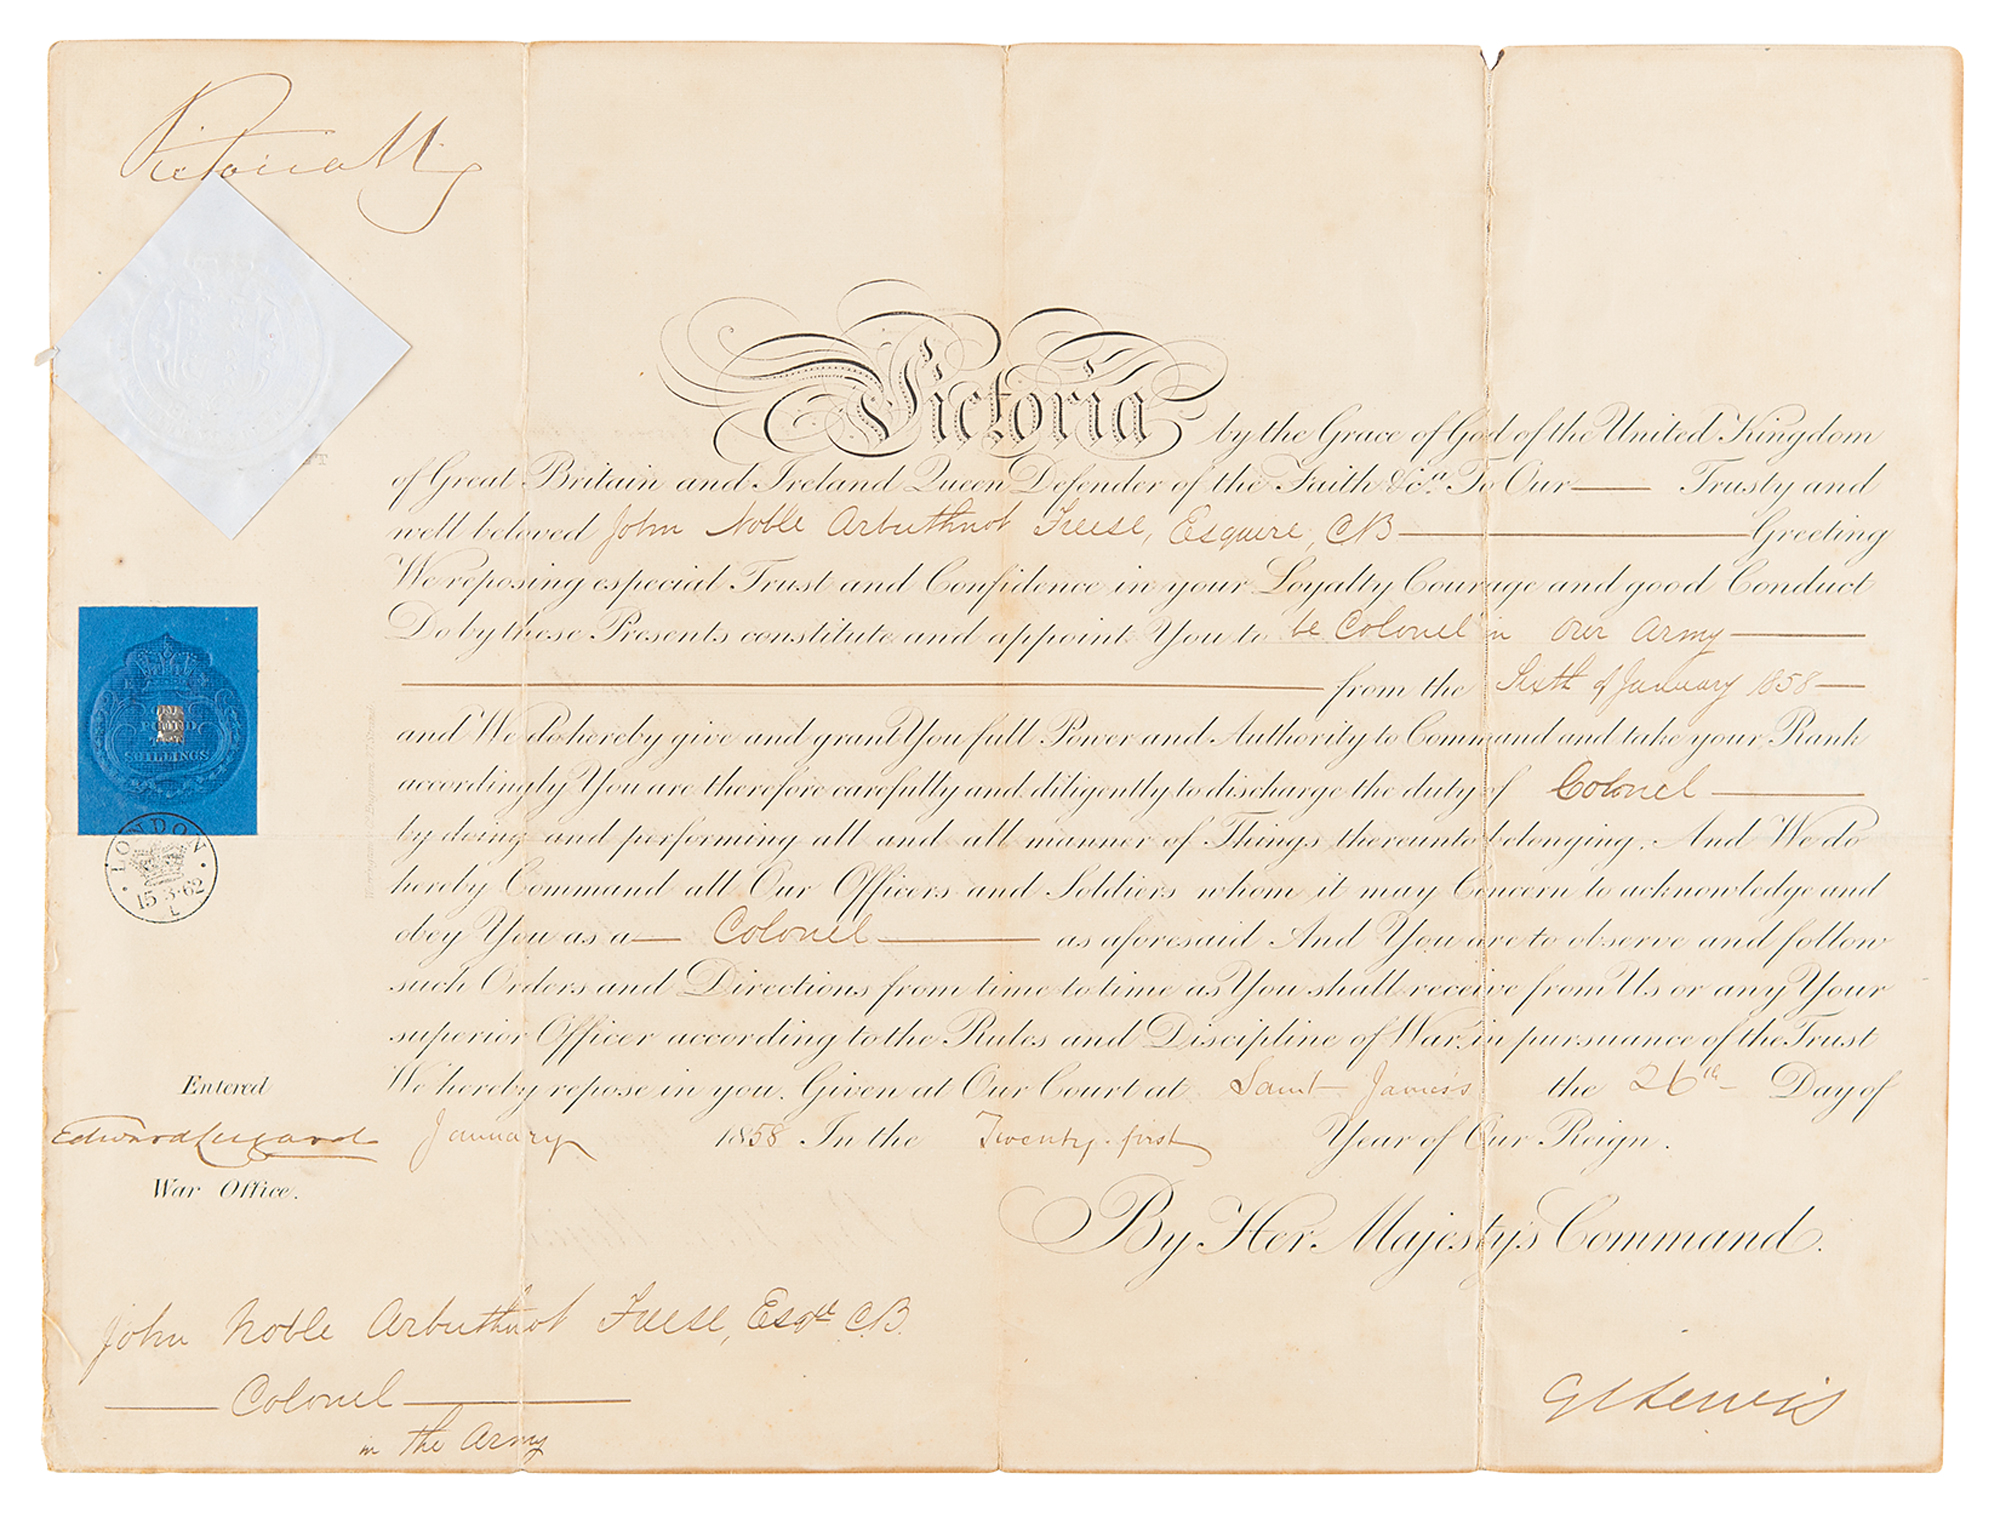 Victoria R
Victoria by the Grace of God of the United Kingdom
of Great Britain and Ireland Queen Defender of the Faith &c.a To Our Trusty and
well beloved John Noble Arbuthnot Freese, Esquire, CB Greeting
We reposing especial Trust and Confidence in your Loyalty Courage and good Conduct
Do by these Presents constitute and appoint You to be Colonel in Our Army
from the Sixth of January 1858
and We do hereby give and grant You full Power and Authority to Command and take your Rank
accordingly You are therefore carefully and diligently to discharge the duty of Colonel
by doing and performing all and all manner of Things thereunto belonging. And We do
hereby Command all Our Officers and Soldiers whom it may Concern to acknowledge and
obey You as a Colonel as aforesaid And You are to observe and follow
such Orders and Directions from time to time as You shall receive from Us or any Your
superior Officer according to the Rules and Discipline of War, in pursuance of the Trust
We hereby repose in you. Given at Our Court at Saint James's the 26th Day of
January 1858 In the Twenty-first Year of Our Reign.
By Her Majesty's Command.
POUND
SHILLINGS
LONDON
15·3·62
1
Entered
Edward Lugard
War Office.
John Noble Arbuthnot Freese, Esqre CB.
Colonel
in the Army
G C Lewis